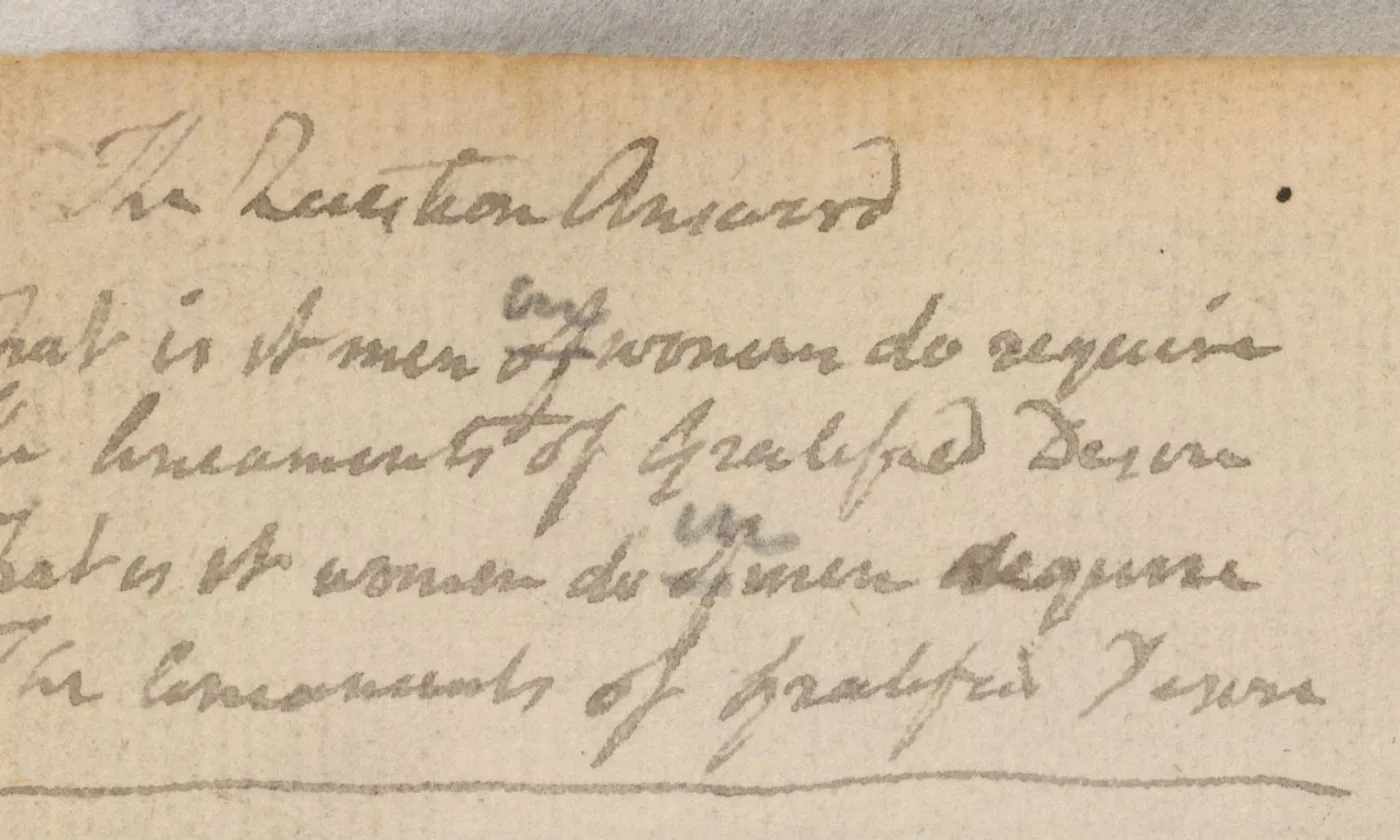 The Question Answerd
in
hat is it men of women do require
he lineaments of Gratified Desire
in
hat is it women do of men require
The lineaments of Gratified Desire